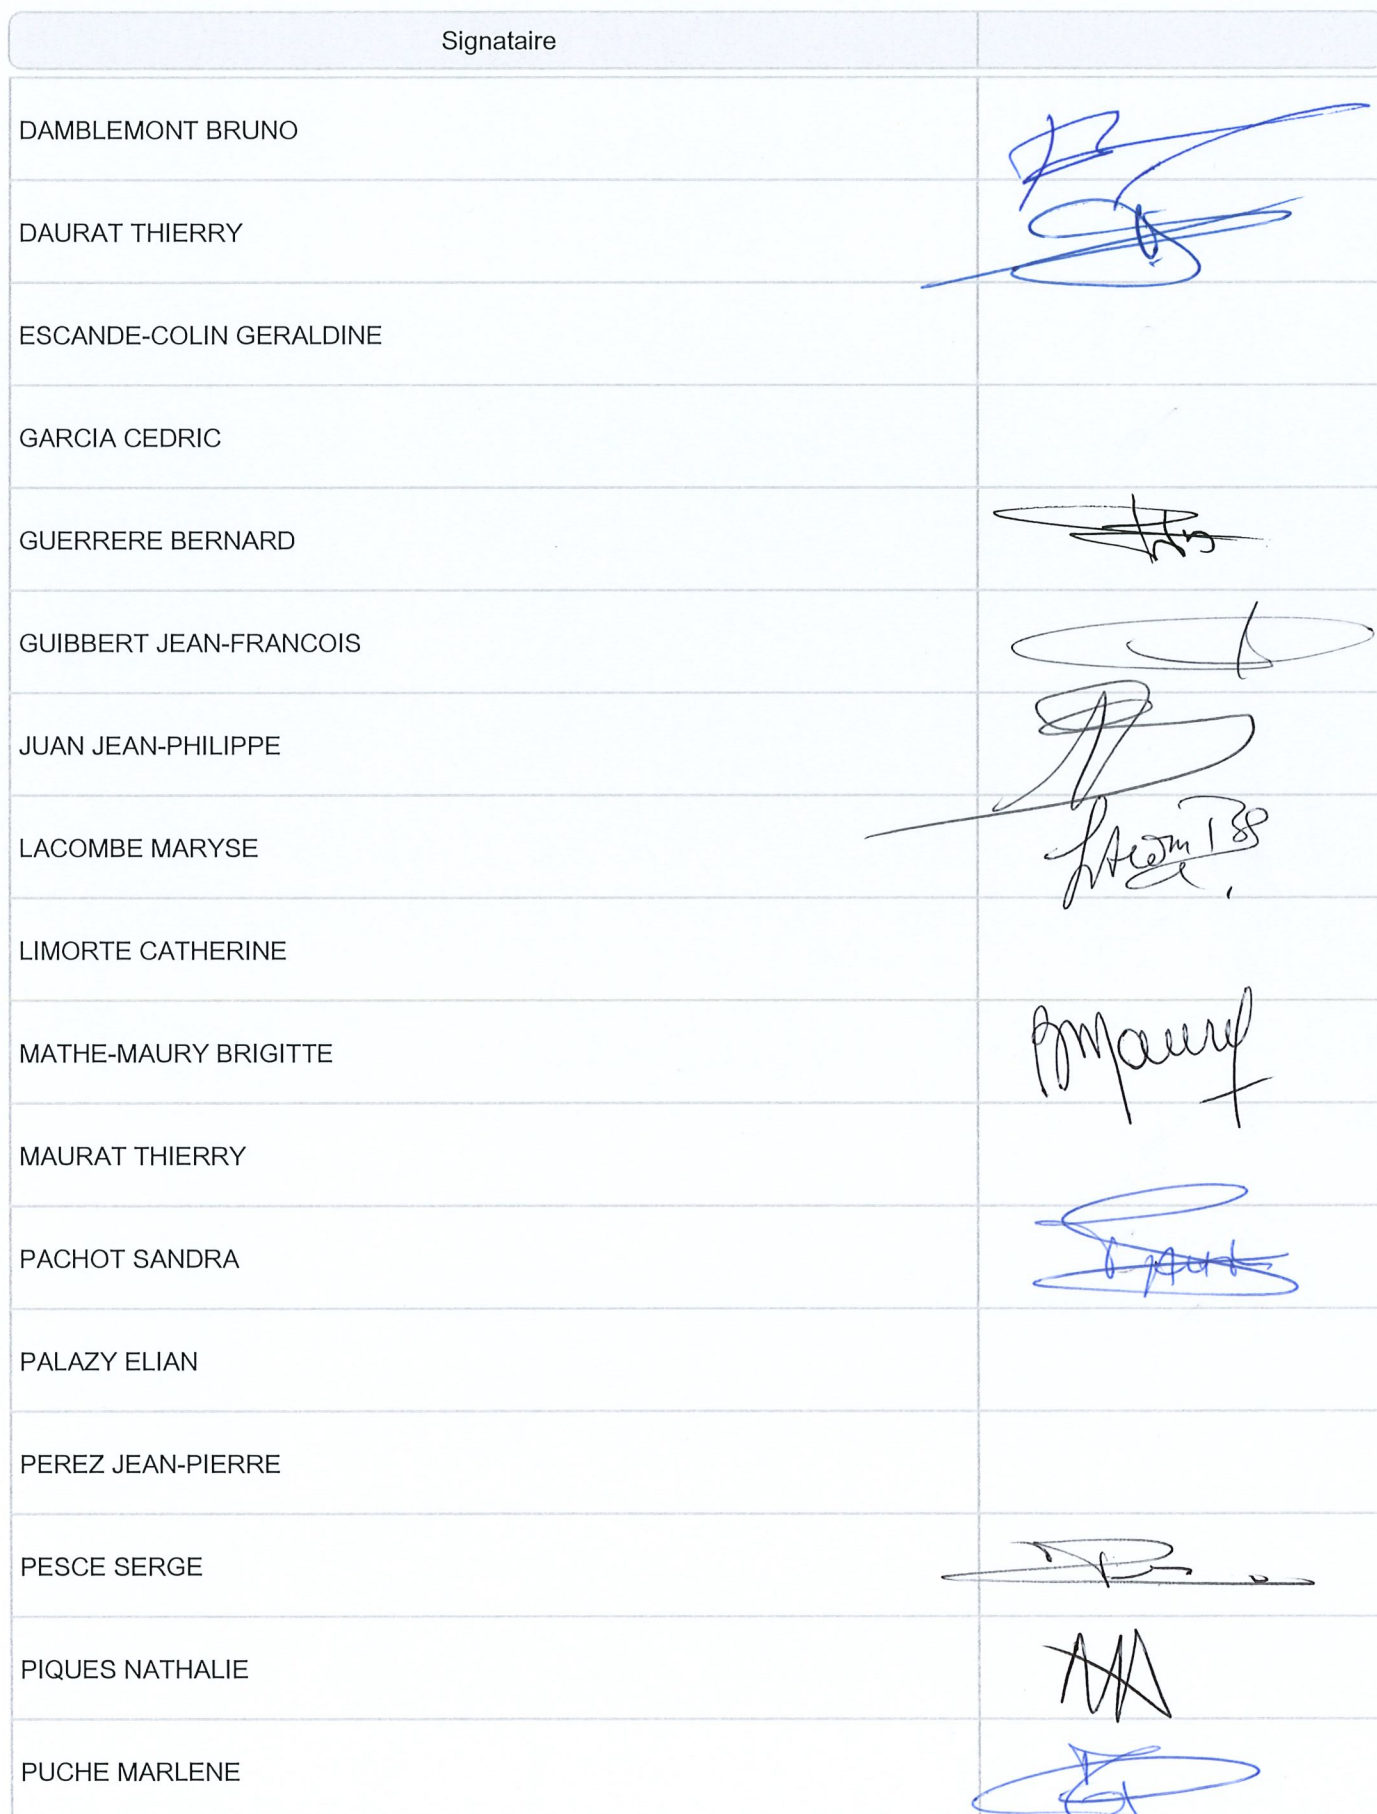 Signataire
DAMBLEMONT BRUNO
DAURAT THIERRY
ESCANDE-COLIN GERALDINE
GARCIA CEDRIC
GUERRERE BERNARD
GUIBBERT JEAN-FRANCOIS
JUAN JEAN-PHILIPPE
LACOMBE MARYSE
LIMORTE CATHERINE
MATHE-MAURY BRIGITTE
MAURAT THIERRY
PACHOT SANDRA
PALAZY ELIAN
PEREZ JEAN-PIERRE
PESCE SERGE
PIQUES NATHALIE
PUCHE MARLENE